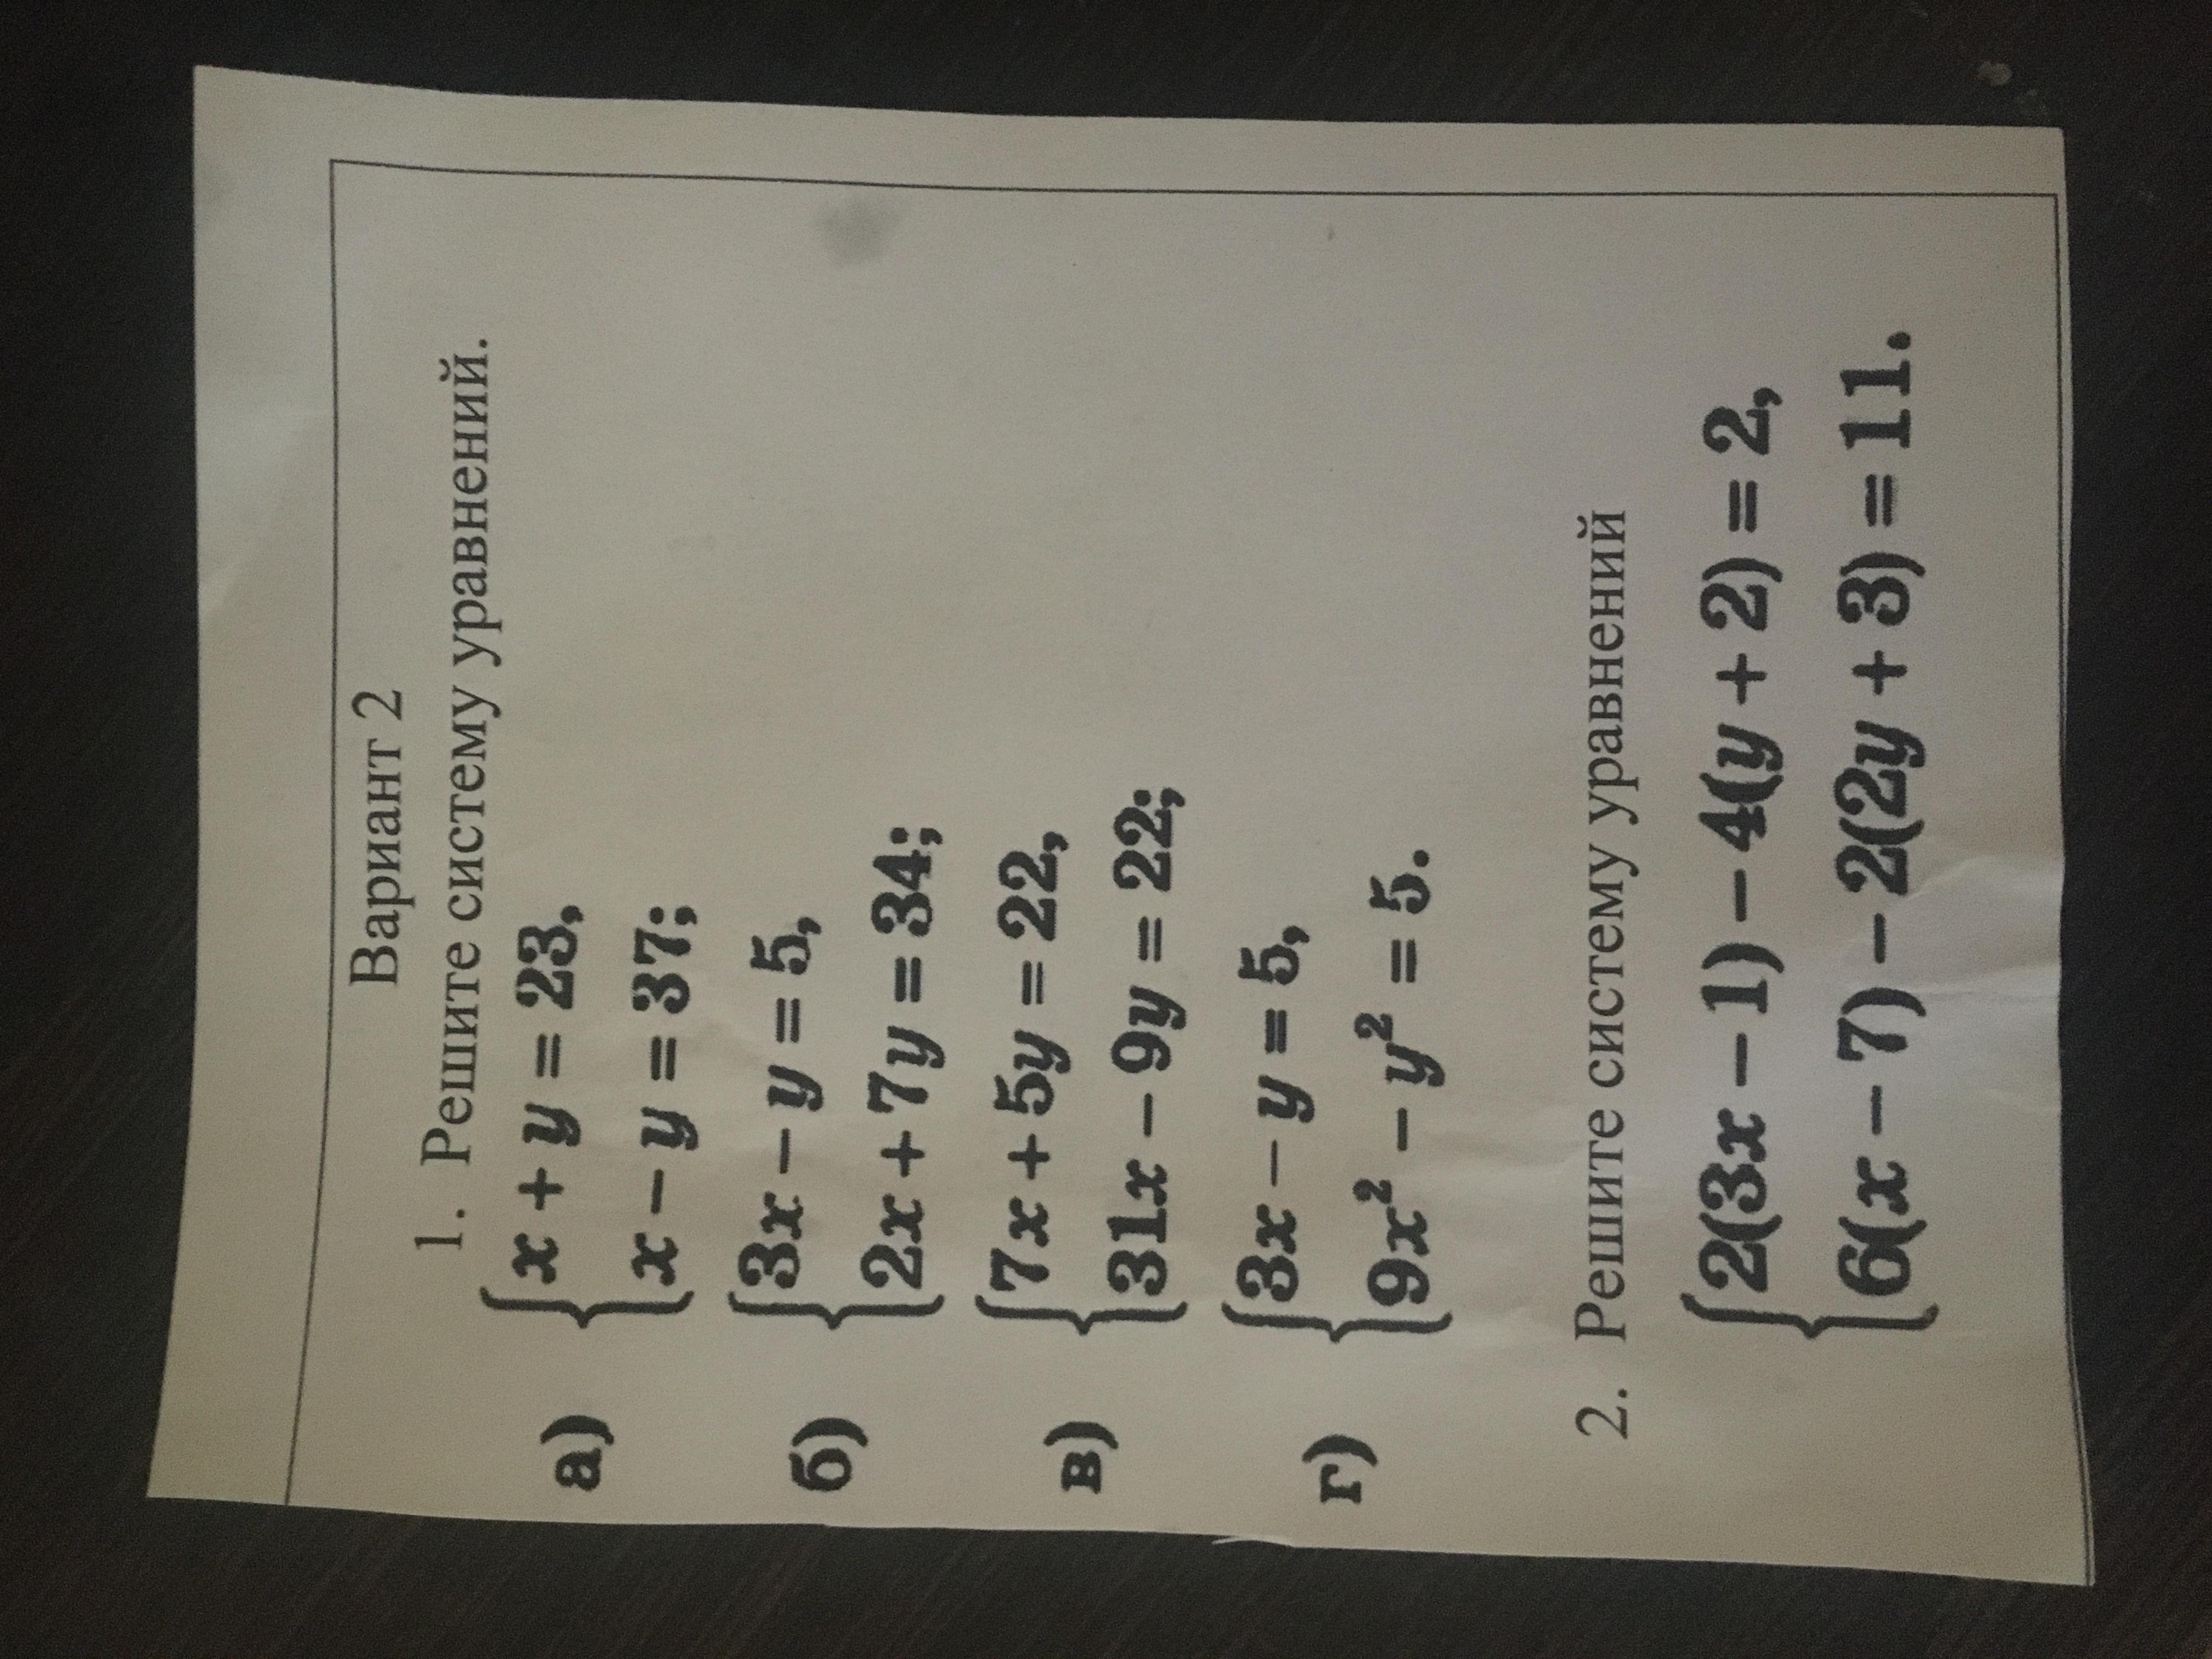 Вариант 2
1. Решите систему уравнений.
а) { x + y = 23,
x − y = 37;
б) { 3x − y = 5,
2x + 7y = 34;
в) { 7x + 5y = 22,
31x − 9y = 22;
г) { 3x − y = 5,
9x² − y² = 5.
2. Решите систему уравнений
{ 2(3x − 1) − 4(y + 2) = 2,
6(x − 7) − 2(2y + 3) = 11.